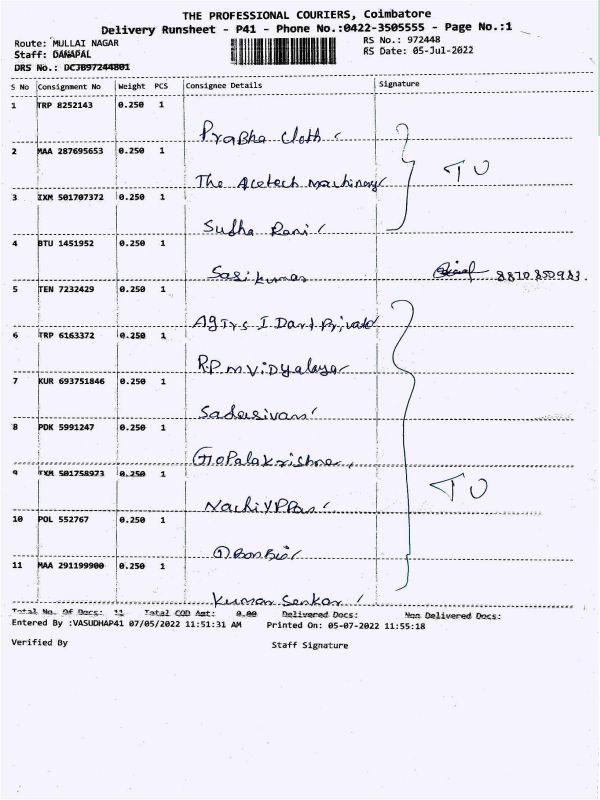 THE PROFESSIONAL COURIERS, Coimbatore
Delivery Runsheet - P41 - Phone No.:0422-3505555 - Page No.:1
Route: MULLAI NAGAR RS No.: 972448
Staff: DANAPAL RS Date: 05-Jul-2022
DRS No.: DCJB97244801
S No Consignment No Weight PCS Consignee Details Signature
1 TRP 8252143 0.250 1
Prabha Cloth
2 MAA 287695653 0.250 1
TU
The Acetech Machinery
3 IXM 501707372 0.250 1
Sudha Rani
4 BTU 1451952 0.250 1
Sasikumar
5 TEN 7232429 0.250 1
6 TRP 6163372 0.250 1
R.P.M Vidyalaya
7 KUR 693751846 0.250 1
Sadasivam
8 PDK 5991247 0.250 1
GoPalakrishna
9 IXM 501758973 0.250 1
TU
10 POL 552767 0.250 1
11 MAA 291199900 0.250 1
Kumar Senkar
Total No. Of Docs: 11 Total COD Amt: 0.00 Delivered Docs: Non Delivered Docs:
Entered By :VASUDHAP41 07/05/2022 11:51:31 AM Printed On: 05-07-2022 11:55:18
Verified By Staff Signature